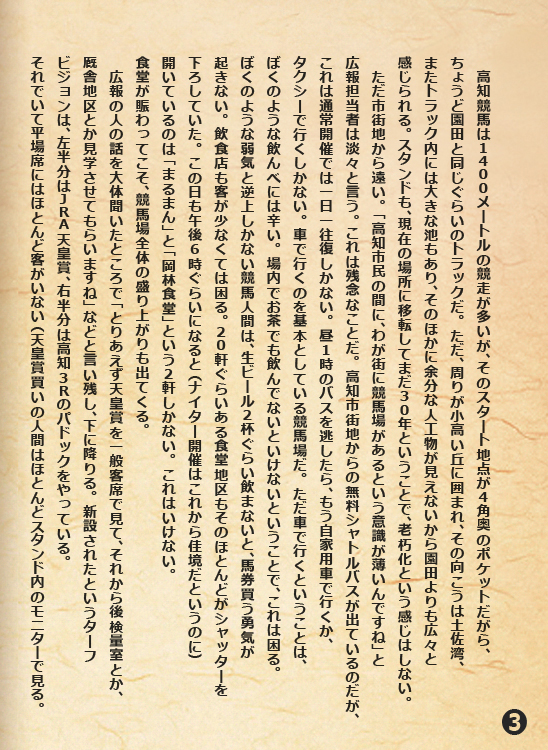 高知競馬は1400メートルの競走が多いが、そのスタート地点が4角奥のポケットだがら、
ちょうど園田と同じぐらいのトラックだ。ただ、周りが小高い丘に囲まれ、その向こうは土佐湾、
またトラック内には大きな池もあり、そのほかに余分な人工物が見えないから園田よりも広々と
感じられる。スタンドも、現在の場所に移転してまだ30年ということで、老朽化という感じはしない。
ただ市街地から遠い。「高知市民の間に、わが街に競馬場があるという意識が薄いんですね」と
広報担当者は淡々と言う。これは残念なことだ。高知市街地からの無料シャトルバスが出ているのだが、
これは通常開催では一日一往復しかない。昼1時のバスを逃したら、もう自家用車で行くか、
タクシーで行くしかない。車で行くのを基本としている競馬場だ。ただ車で行くということは、
ぼくのような飲んべには辛い。場内でお茶でも飲んでないといけないということで、これは困る。
ぼくのような弱気と逆上しかない競馬人間は、生ビール2杯ぐらい飲まないと、馬券買う勇気が
起きない。飲食店も客が少なくては困る。20軒ぐらいある食堂地区もそのほとんどがシャッターを
下ろしていた。この日も午後6時ぐらいになると(ナイター開催はこれから佳境だというのに)
開いているのは「まるまん」と「岡林食堂」という2軒しかない。これはいけない。
食堂が賑わってこそ、競馬場全体の盛り上がりも出てくる。
広報の人の話を大体聞いたところで「とりあえず天皇賞を一般客席で見て、それから後検量室とか、
厩舎地区とか見学させてもらいますね」などと言い残し、下に降りる。新設されたというターフ
ビジョンは、左半分はJRA天皇賞、右半分は高知3Rのパドックをやっている。
それでいて平場席にはほとんど客がいない(天皇賞買いの人間はほとんどスタンド内のモニターで見る。
3